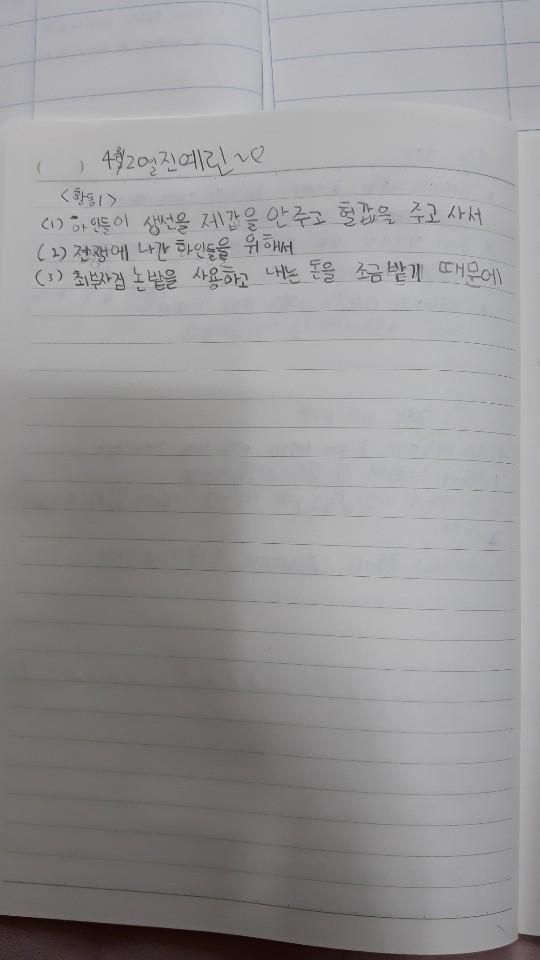 ( ) 4월20일진예린~♡
<활동1>
(1) 하인들이 생선을 제값을 안주고 헐값을 주고 사서
(2) 전쟁에 나간 하인들을 위해서
(3) 최부자집 논밭을 사용하고 내는 돈을 조금 받기 때문에